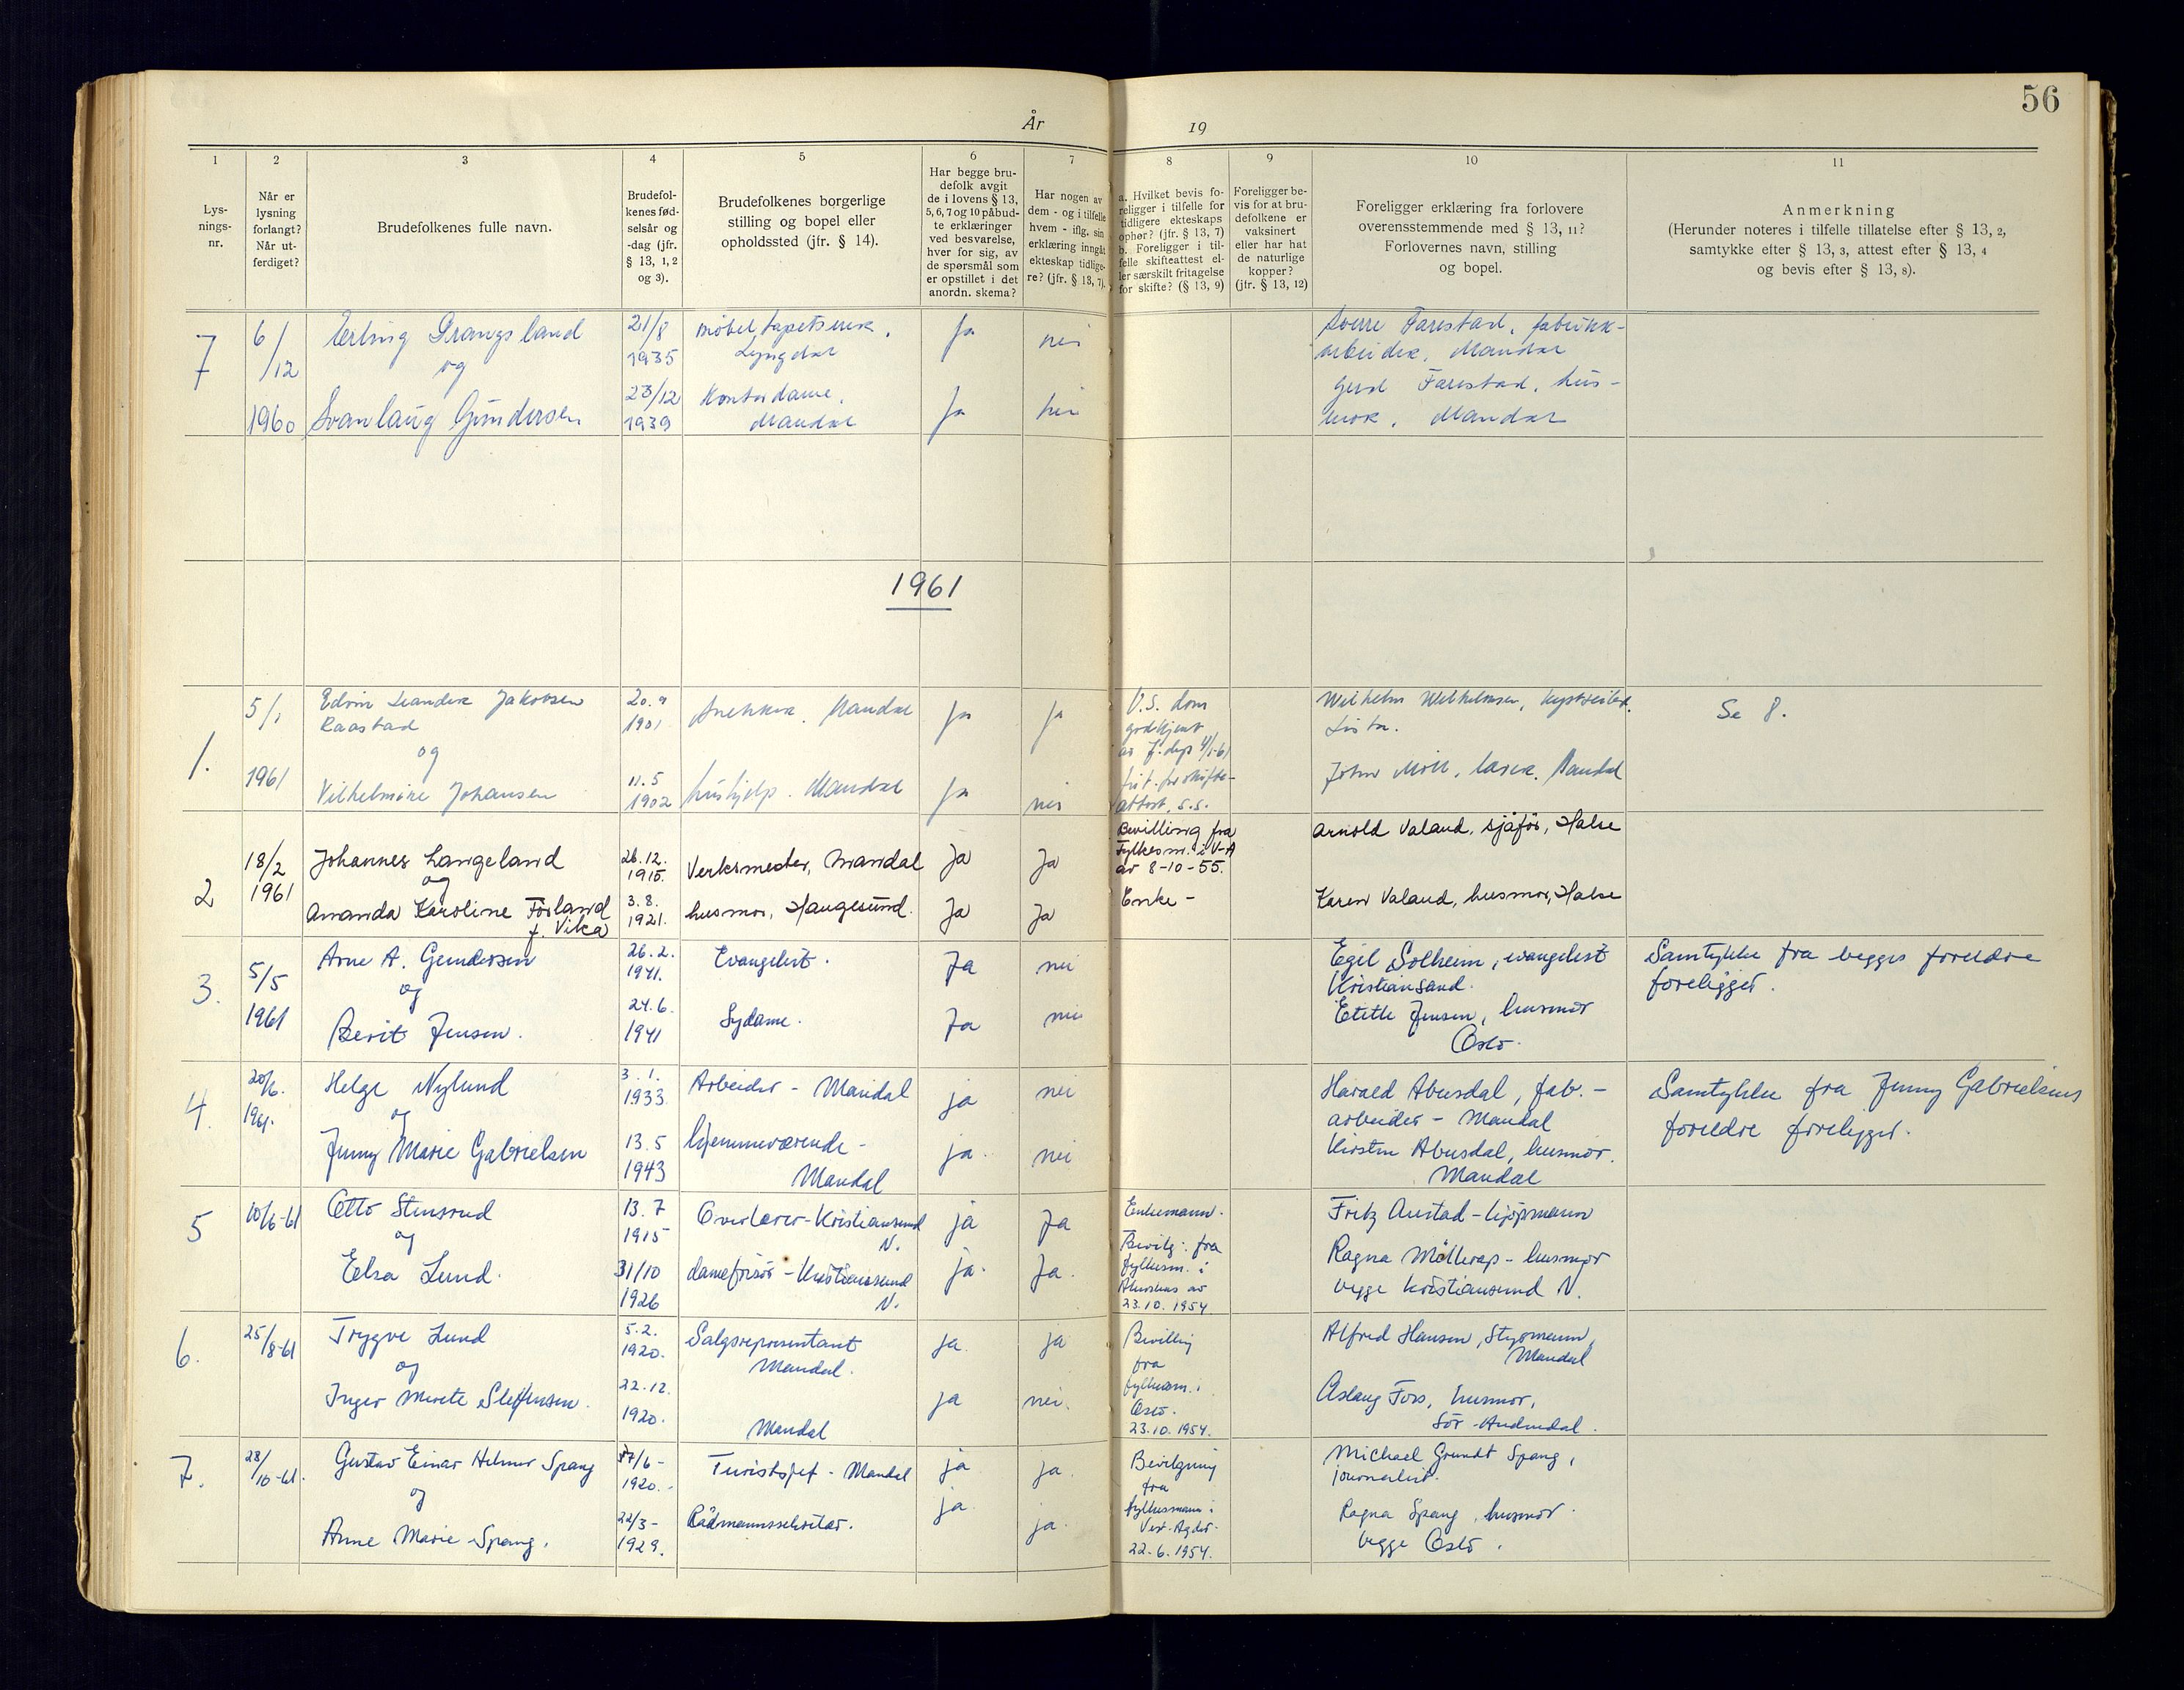 56
År 19
1 2 3 4 5 6 7 8 9 10 11
Lys-
nings-
nr.
Når er
lysning
forlangt?
Når ut-
ferdiget?
Brudefolkenes fulle navn.
Brudefol-
kenes fød-
selsår og
-dag (jfr.
§ 13, 1, 2
og 3).
Brudefolkenes borgerlige
stilling og bopel eller
opholdssted (jfr. § 14).
Har begge bru-
defolk avgit
de i lovens § 13,
5, 6, 7 og 10 påbud-
te erklæringer
ved besvarelse,
hver for sig, av
de spørsmål som
er opstillet i det
anordn. skema?
Har nogen av
dem - og i tilfelle
hvem - iflg. sin
erklæring inngått
ekteskap tidlige-
re? (jfr. § 13, 7).
a. Hvilket bevis fo-
religger i tilfelle for
tidligere ekteskaps
ophør? (jfr. § 13, 7)
b. Foreligger i til-
felle skifteattest el-
ler særskilt fritagelse
for skifte? (§ 13, 9)
Foreligger be-
vis for at bru-
defolkene er
vaksinert
eller har hat
de naturlige
kopper?
(jfr. § 13, 12)
Foreligger erklæring fra forlovere
overensstemmende med § 13, 11?
Forlovernes navn, stilling
og bopel.
Anmerkning
(Herunder noteres i tilfelle tillatelse efter § 13, 2,
samtykke efter § 13, 3, attest efter § 13, 4
og bevis efter § 13, 8).
7
6/12
1960
Erling Drangsland
og
Svanlaug Gundersen
21/8
1935
23/12
1939
møbeltapetserer,
Lyngdal
Kontordame,
Mandal
Ja
Ja
nei
nei
Sverre Farestad, fabrikk-
arbeider, Mandal
Gerd Farestad, hus-
mor, Mandal
1961
1.
5/1
1961
Edvin Leander Jakobsen
Raastad
og
Vilhelmine Johansen
20.9
1901
11.5
1902
Snekker, Mandal
hushjelp. Mandal
Ja
Ja
ja
nei
U.S. dom
godkjent
av J.dep 4/1-61
attest, s.s.
Wilhelm Wilhelmsen,
Lista.
John Moll, Mandal
Se 8.
2
18/2
1961
Johannes Langeland
og
Amanda Karoline Förland
f. Vika
26.12.
1915.
3.8.
1921.
Verksmester, Mandal
husmor, Haugesund.
Ja
Ja
Ja
Ja
Bevilling fra
Fylkesm. i V-A
av 8-10-55.
Enke -
Arnold Valand, sjåför, Halse
Karen Valand, husmor, Halse
3.
5/5
1961
Arne A. Gundersen
og
Berit Jensen.
26.2.
1941.
24.6.
1941
Evangelist.
Sydame.
Ja
Ja
nei
nei
Egil Solheim, evangelist
Kristiansand.
Jensen, husmor
Oslo.
Samtykke fra begges foreldre
foreligger.
4.
20/6.
1961.
Helge Nylund
og
Jenny Marie Gabrielsen
3.1.
1933.
13.5
1943
Arbeider - Mandal
hjemmeværende -
Mandal
ja
ja.
nei
nei
Harald Abusdal, fab.-
arbeider - Mandal
Kirsten Abusdal, husmor.
Mandal
Samtykke fra Jenny Gabrielsens
foreldre foreligger.
5
10/6-61
Otto Stensrud
og
Elsa Lund.
13.7
1915
31/10
1926
Overlærer-Kristiansund
N.
damefrisör - Kristiansund
N.
ja
ja.
Ja
Ja.
Enkemann.
Bevilg. fra
fylkesm. i
Akershus av
23.10.1954.
Fritz Austad - kjöpmann
Ragna Möllerop - husmor
begge Kristiansund N.
6.
25/8-61
Trygve Lund
og
Inger Merete Steffensen.
5.2.
1920.
22.12.
1920.
Salgsrepresentant
Mandal.
Mandal
ja.
ja
ja
nei.
Bevilling
fra
fylkesm. i
Oslo.
23.10.1954.
Alfred Hansen, Styrmann,
Mandal
Aslaug Foss, husmor,
Sör-Audnedal.
7.
28/10-61.
Gustav Einar Helmer Spang
og
Anne Marie Spang.
17/6-
1920.-
22/3-
1929.
Turistsjef - Mandal
Rådmannssekretær.
ja
ja.
ja.
ja.
Bevilgning
fra
fylkesmann i
Vest-Agder.
22.6.1954.
Michael Grundt Spang,
journalist.
Ragna Spang, husmor.
begge Oslo.